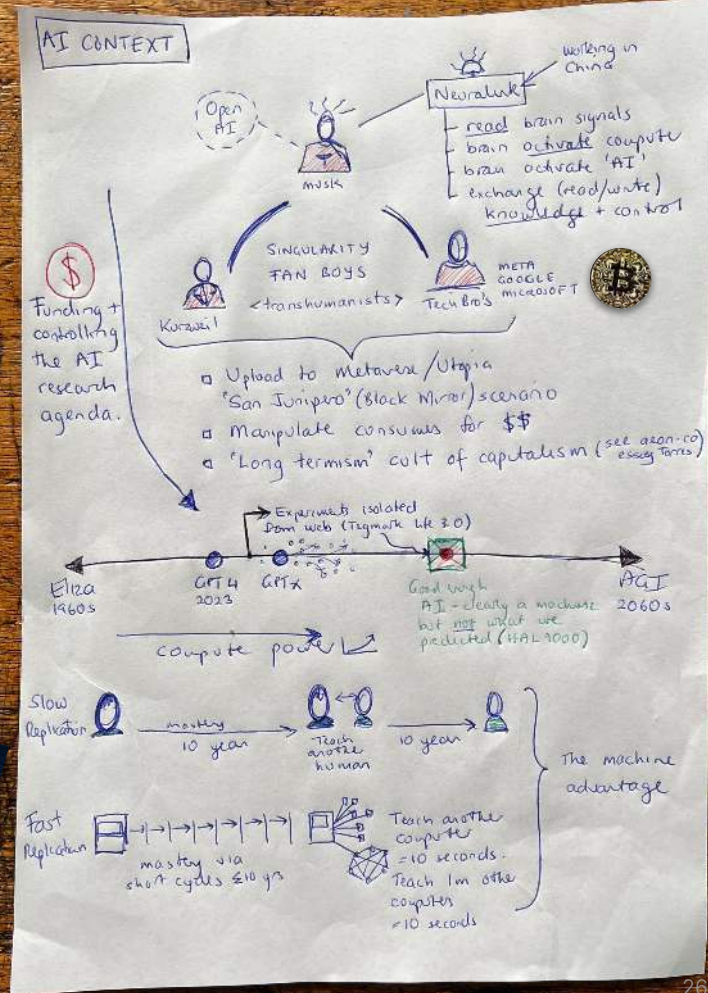 AI CONTEXT
Open
AI
musk
working in
China
Neuralink
read brain signals
brain activate compute
brain activate 'AI'
exchange (read/write)
knowledge + control
SINGULARITY
FAN BOYS
<transhumanists>
Kurzweil
Tech Bro's
META
GOOGLE
MICROSOFT
$
Funding +
controlling
the AI
research
agenda.
Upload to Metaverse/Utopia
"San Junipero" (Black Mirror) scenario
Manipulate consumes for $$
'Long termism' cult of capitalism (see aeon.co)
essay Torres
Experiments isolated
from web (Tegmark Life 3.0)
Eliza
1960s
GPT 4
2023
GPT x
Good enough
AI - clearly a machine
but not what we
predicted (HAL 9000)
AGI
2060s
compute power
Slow
Replication
mastery
10 year
Teach
another
human
10 year
The machine
advantage
Fast
Replication
mastery via
short cycles ≤10 yrs
Teach another
computer
=10 seconds.
Teach 1m other
computers
=10 seconds
26